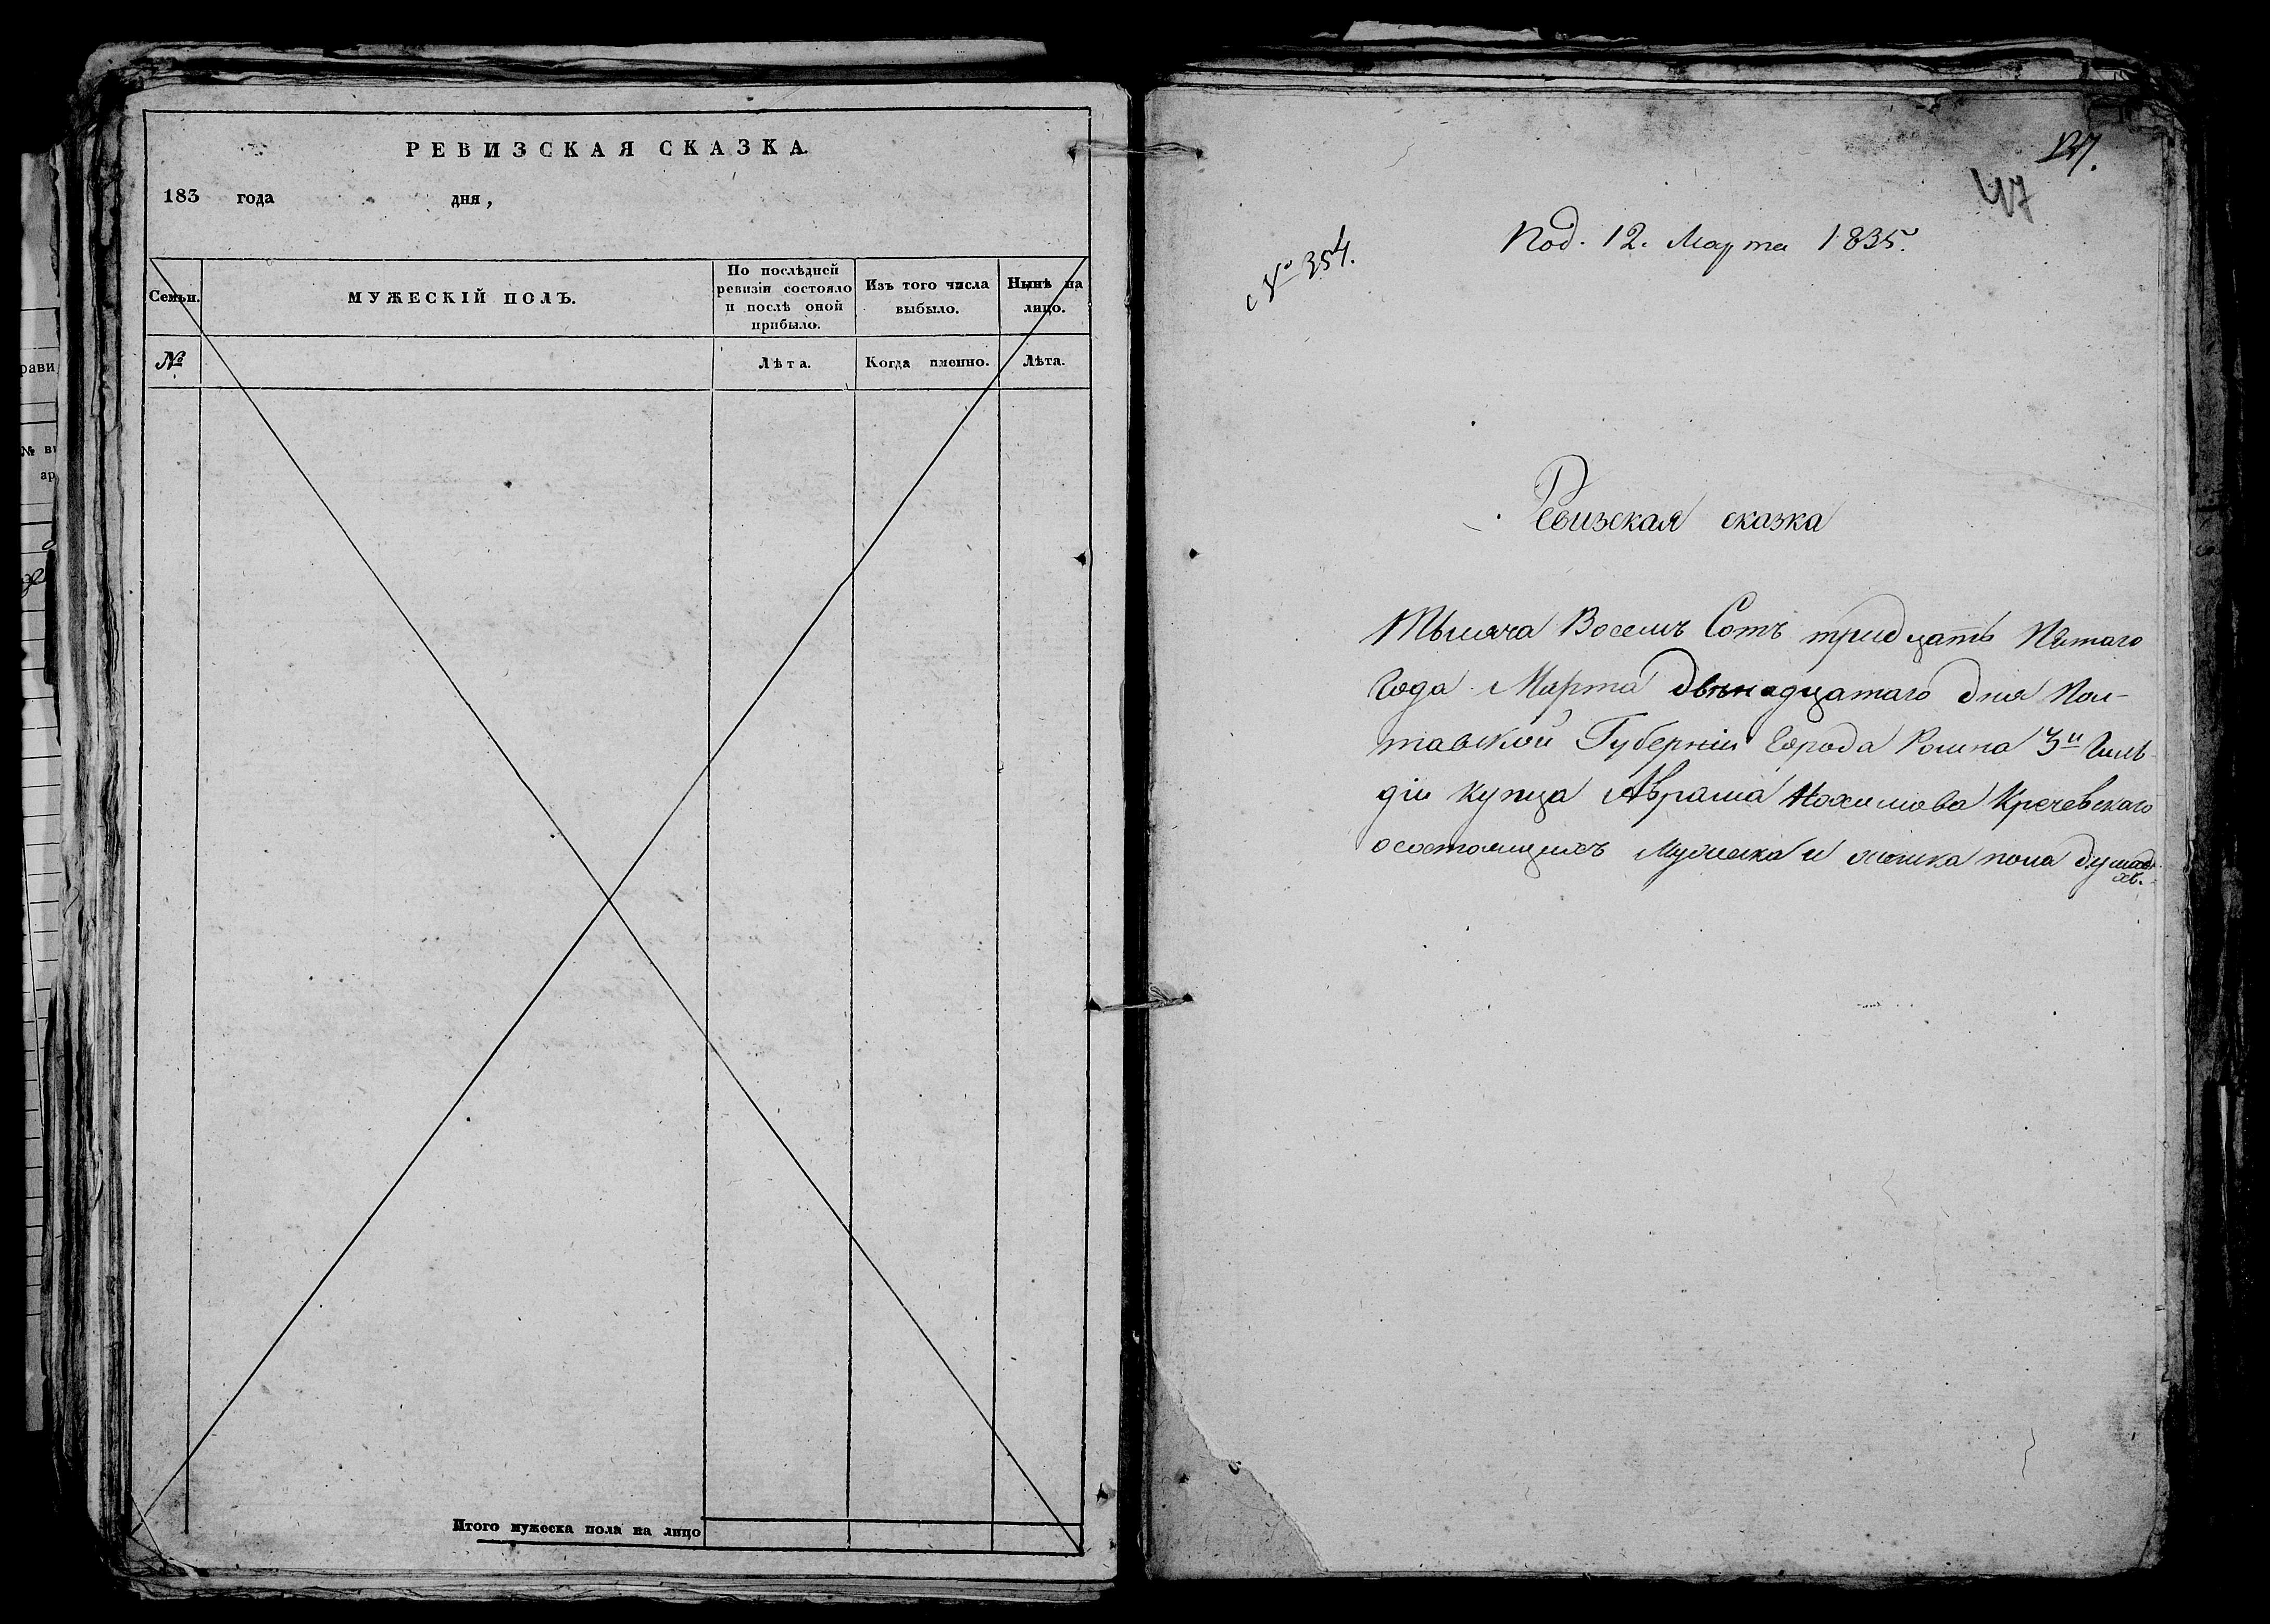 РЕВИЗСКАЯ СКАЗКА.
183 года дня,
Семьи.
МУЖЕСКІЙ ПОЛЪ.
По послѣдней
ревизіи состояло
и послѣ оной
прибыло.
Изъ того числа
выбыло.
Нынѣ на
лицо.
№
Лѣта.
Когда именно.
Лѣта.
Итого мужеска пола на лицо
47
№ 354.
Под. 12. Марта 1835.
Ревизская сказка
Тысяча Восемъ Сотъ тридцать Пятаго
Года Марта двенадцатаго дня Пол-
тавской Губерніи Города Ромна 3й Гиль-
діи купца Абрама Нохимова Кречевскаго
о состоящихъ Мужеска и женска пола душахъ.